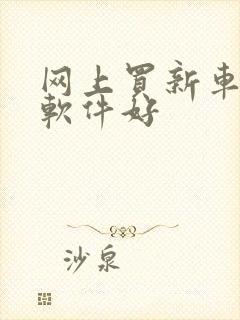 网上買新車
軟件好
沙泉